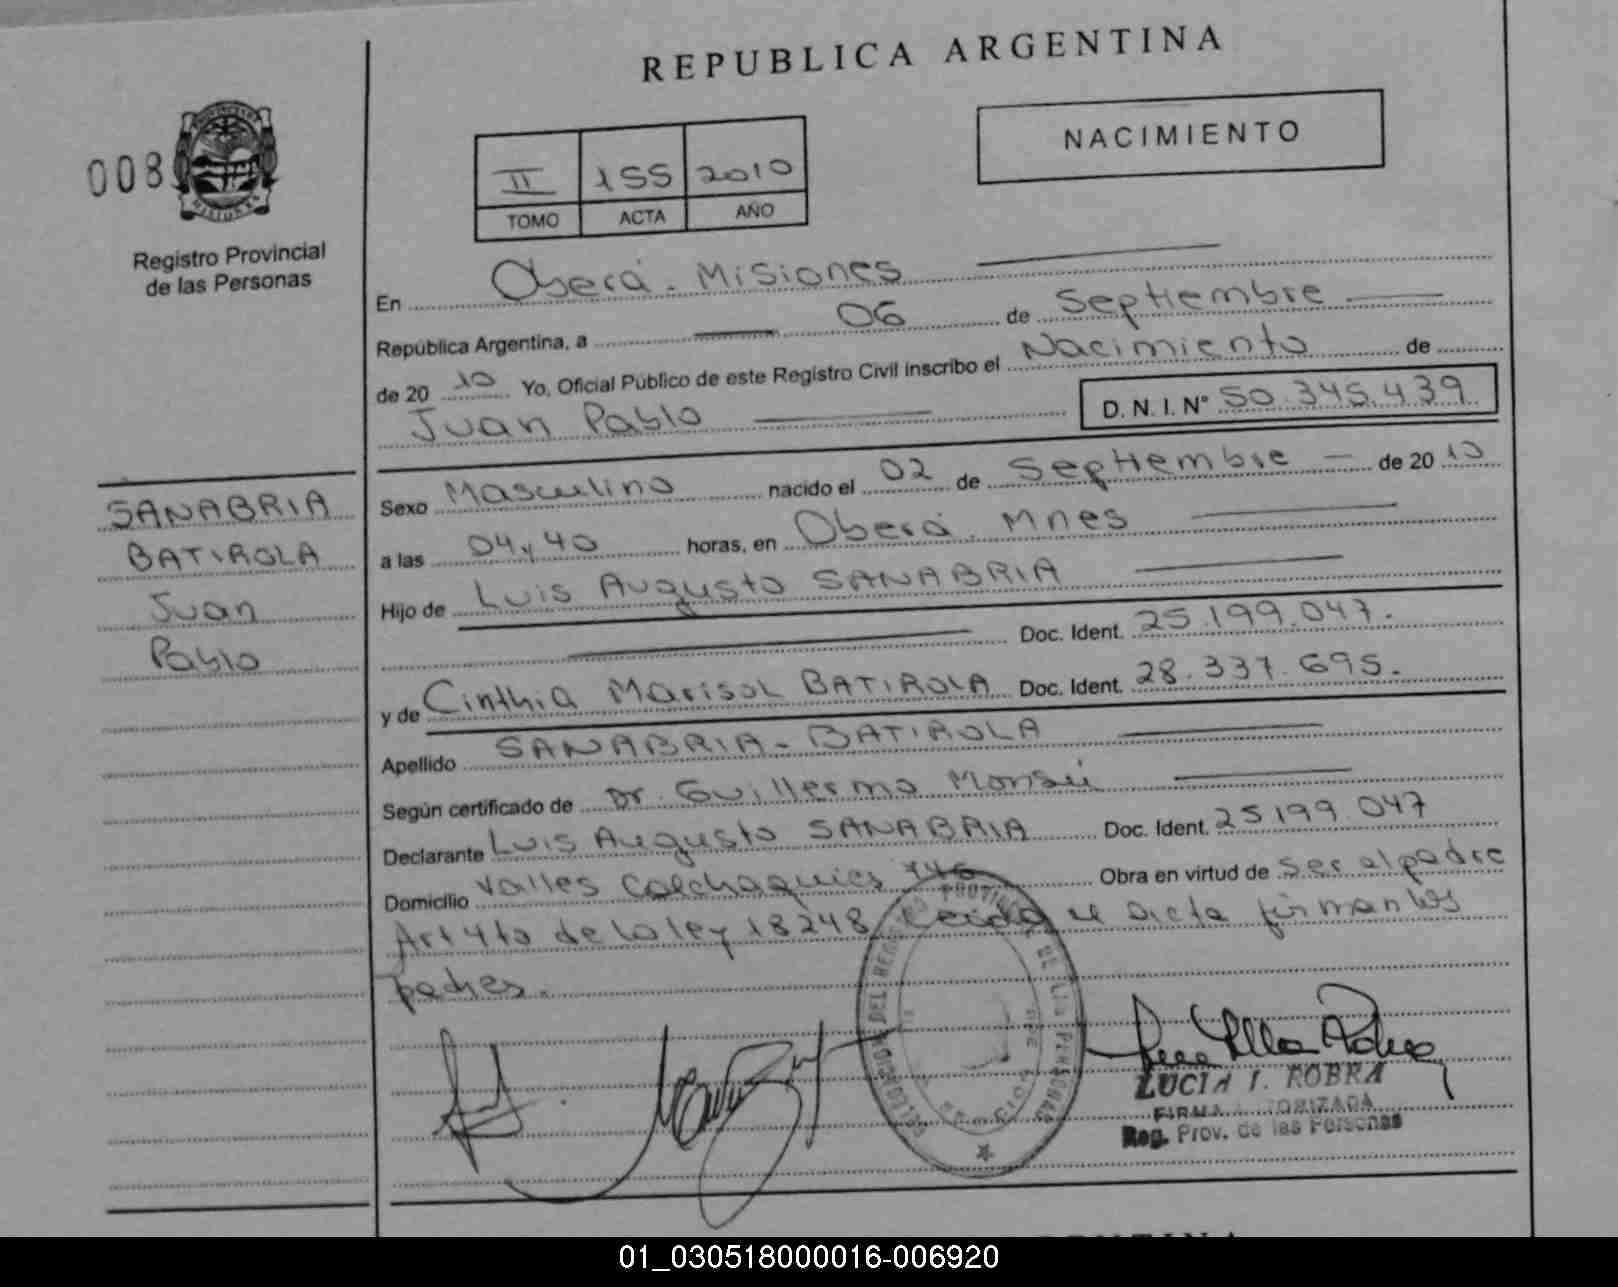 REPUBLICA ARGENTINA
NACIMIENTO
008
PROVINCIA
MISIONES
Registro Provincial
de las Personas
II 155 2010
TOMO ACTA AÑO
En Oberá - Misiones
República Argentina, a 06 de Septiembre
de 20 10 Yo, Oficial Público de este Registro Civil inscribo el Nacimiento de
Juan Pablo D. N. I. N° 50.345.439
SANABRIA
BATIROLA
Juan
Pablo
Sexo Masculino nacido el 02 de Septiembre de 20 10
a las 04,40 horas, en Oberá. Mnes
Hijo de Luis Augusto SANABRIA
Doc. Ident. 25.199.047.
y de Cinthia Marisol BATIROLA Doc. Ident. 28.337.695.
Apellido SANABRIA - BATIROLA
Según certificado de Dr. Guillermo
Declarante Luis Augusto SANABRIA Doc. Ident. 25199.047
Domicilio Valles Calchaquies Obra en virtud de ser el padre
Art 4to de la ley 18248 Leida el acta firman los
padres.
LUCIA I. ROBRA
FIRMA AUTORIZADA
Reg. Prov. de las Personas
01_030518000016-006920